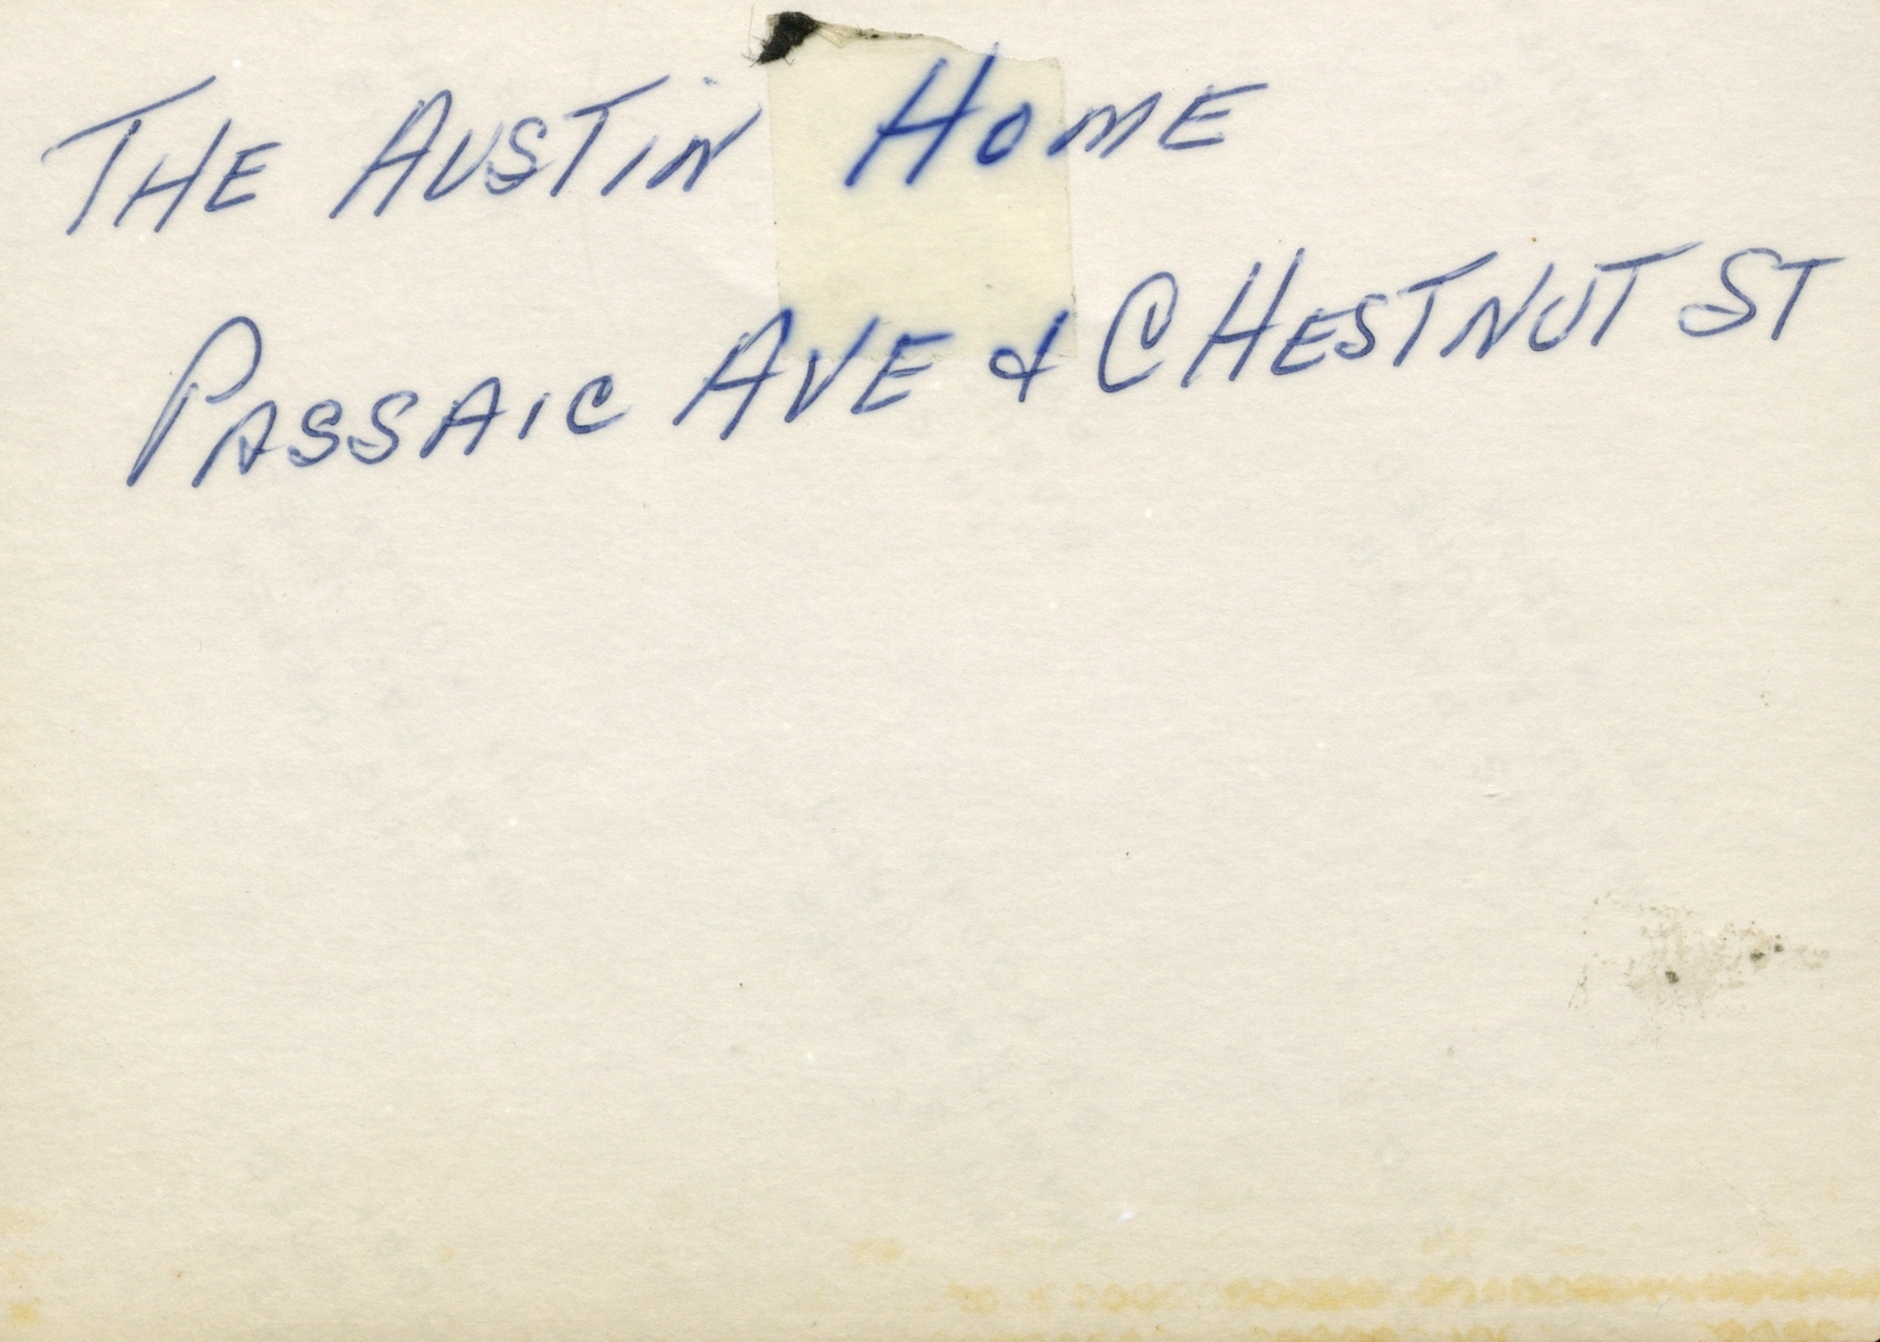 THE AUSTiN HOME
PASSAIC AVE & CHESTNUT ST